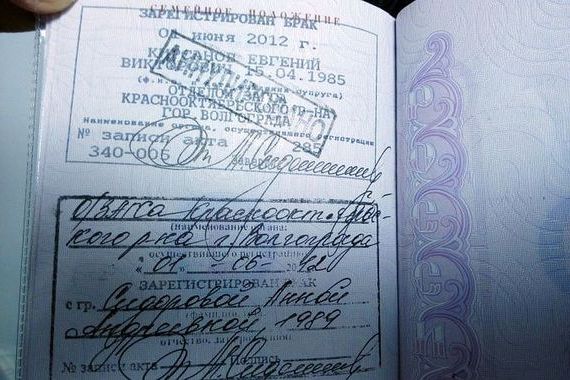 СЕМЕЙНОЕ ПОЛОЖЕНИЕ
ЗАРЕГИСТРИРОВАН БРАК
01 июня 2012 г.
ЕВГЕНИЙ
15.04.1985
ОТДЕЛ ЗАГСА
КРАСНООКТЯБРЬСКОГО Р-НА
ГОР. ВОЛГОГРАДА
наименование органа, осуществившего регистрацию
№ записи акта 285
340-006
О/ЗАГСа Краснооктябрьс-
кого р-на г. Волгограда
(наименование органа,
осуществившего регистрацию)
"01" - 06 - 2012
ЗАРЕГИСТРИРОВАН БРАК
с гр. Сидоровой Анной
Андреевной, 1989
отчество, дата рождения
№ записи акта Подпись